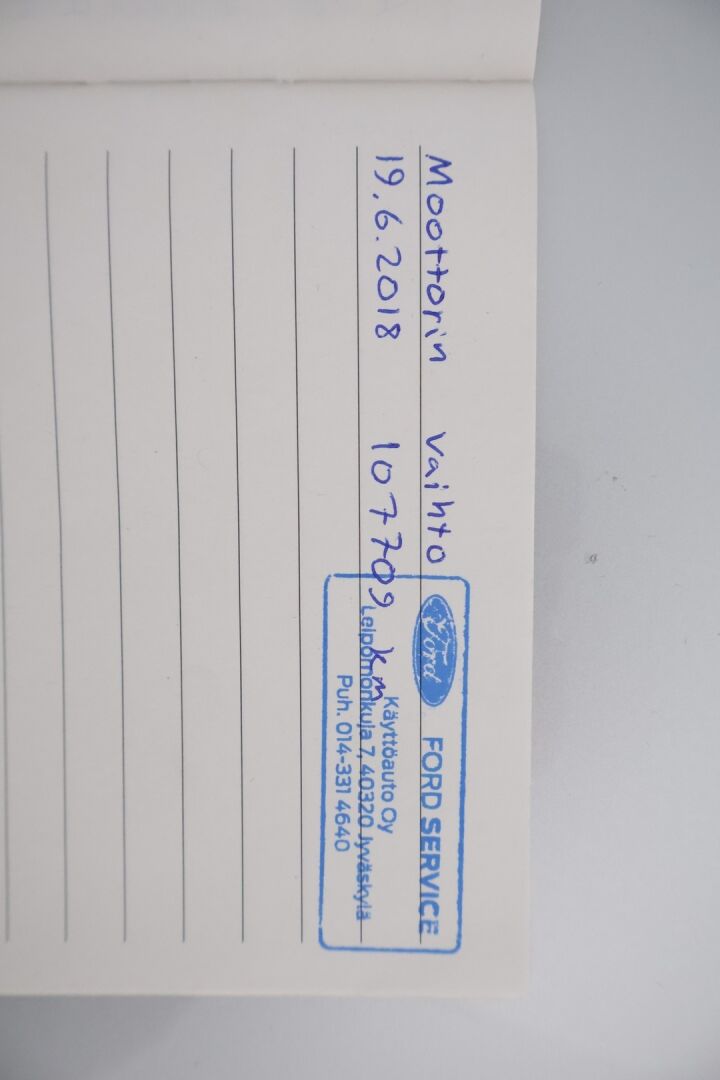 Moottorin vaihto
19.6.2018 107709 km
Ford FORD SERVICE
Käyttöauto Oy
Leipomonkuja 7, 40320 Jyväskylä
Puh. 014-331 4640